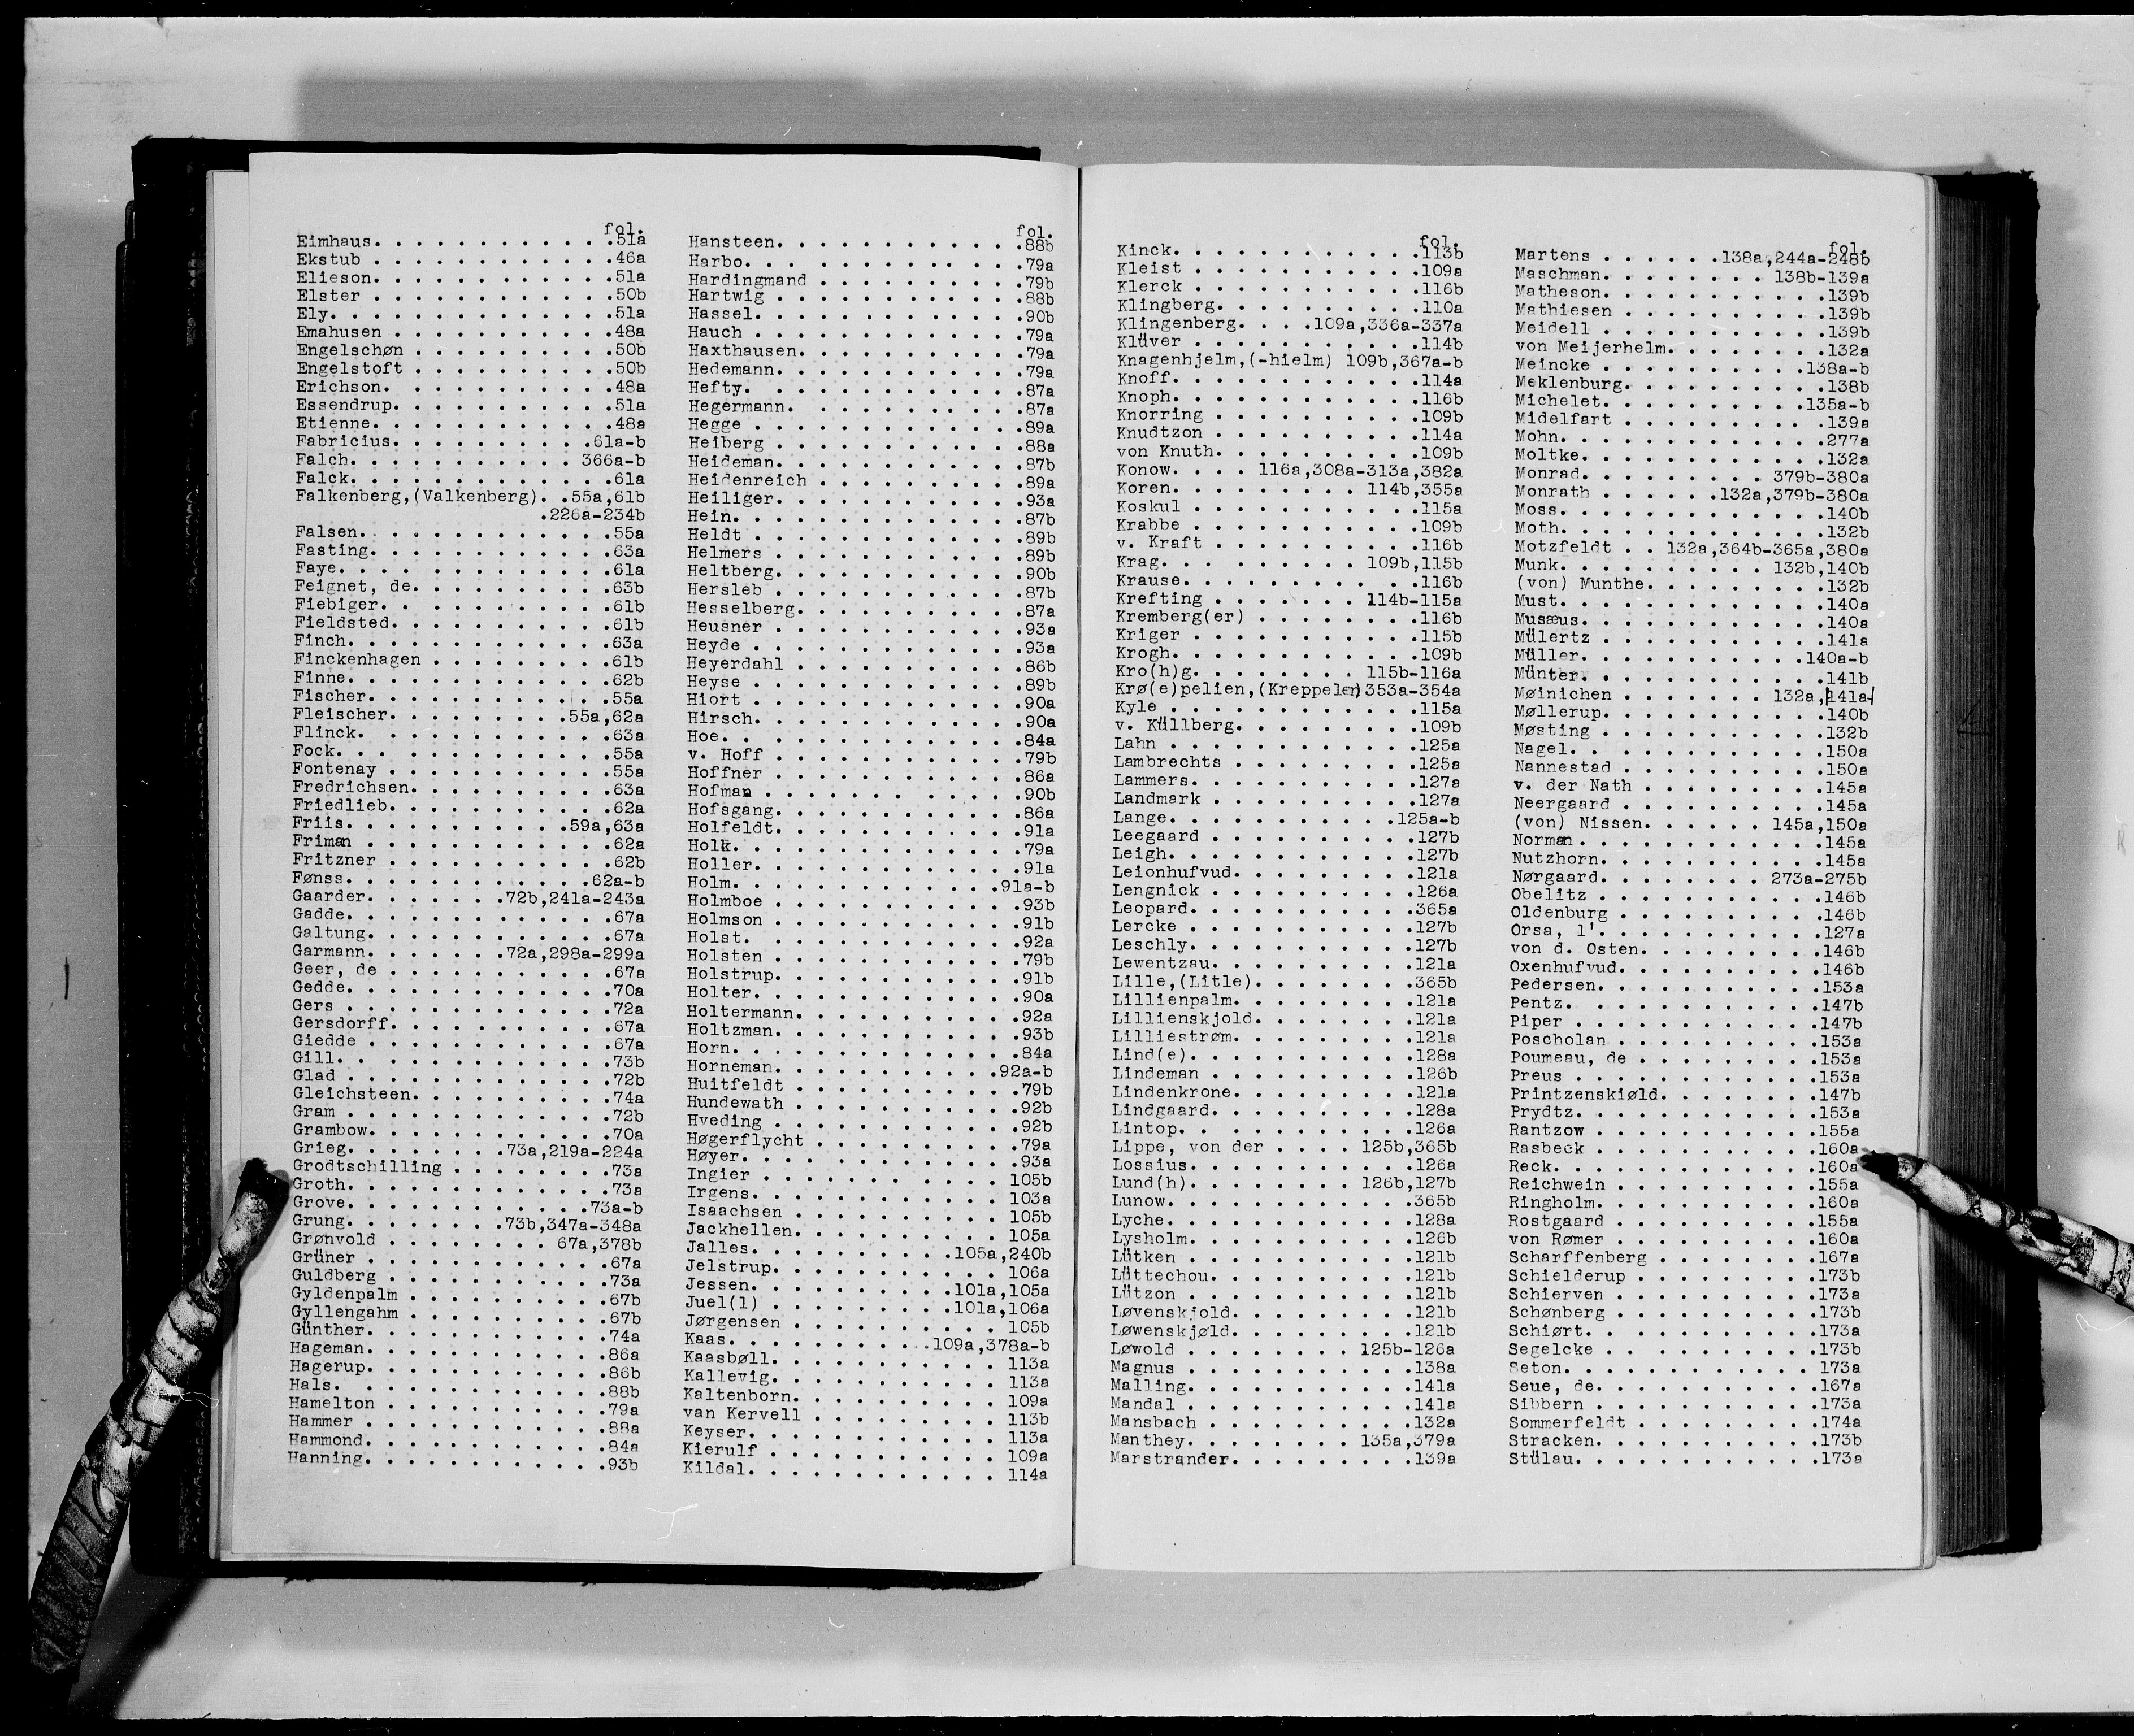 fol.
Eimhaus. . . . . . . . . . . . .51a
Ekstub . . . . . . . . . . . . .46a
Elieson. . . . . . . . . . . . .51a
Elster . . . . . . . . . . . . .50b
Ely. . . . . . . . . . . . . . .51a
Emahusen . . . . . . . . . . . .48a
Engelschøn . . . . . . . . . . .50b
Engelstoft . . . . . . . . . . .50b
Erichson. . . . . . . . . . . .48a
Essendrup. . . . . . . . . . . .51a
Etienne. . . . . . . . . . . . .48a
Fabricius. . . . . . . . . . .61a-b
Falch. . . . . . . . . . . . 366a-b
Falck. . . . . . . . . . . . . .61a
Falkenberg,(Valkenberg). .55a,61b
.226a-234b
Falsen. . . . . . . . . . . . .55a
Fasting. . . . . . . . . . . . .63a
Faye. . . . . . . . . . . . . .61a
Feignet, de. . . . . . . . . . .63b
Fiebiger. . . . . . . . . . . .61b
Fieldsted. . . . . . . . . . . .61b
Finch. . . . . . . . . . . . . .63a
Finckenhagen . . . . . . . . . .61b
Finne. . . . . . . . . . . . . .62b
Fischer. . . . . . . . . . . . .55a
Fleischer. . . . . . . . . .55a,62a
Flinck. . . . . . . . . . . . .63a
Fock. . . . . . . . . . . . . .55a
Fontenay . . . . . . . . . . . .55a
Fredrichsen. . . . . . . . . . .63a
Friedlieb. . . . . . . . . . . .62a
Friis. . . . . . . . . . . .59a,63a
Friman . . . . . . . . . . . . .62a
Fritzner . . . . . . . . . . . .62b
Fønss. . . . . . . . . . . . .62a-b
Gaarder. . . . . . . .72b,241a-243a
Gadde. . . . . . . . . . . . . .67a
Galtung. . . . . . . . . . . . .67a
Garmann. . . . . . . .72a,298a-299a
Geer, de . . . . . . . . . . . .67a
Gedde. . . . . . . . . . . . . .70a
Gers . . . . . . . . . . . . . .72a
Gersdorff. . . . . . . . . . . .67a
Giedde . . . . . . . . . . . . .67a
Gill. . . . . . . . . . . . . .73b
Glad . . . . . . . . . . . . . .72b
Gleichsteen. . . . . . . . . . .74a
Gram . . . . . . . . . . . . . .72b
Grambow. . . . . . . . . . . . .70a
Grieg. . . . . . . . .73a,219a-224a
Grodtschilling . . . . . . . . .73a
Groth. . . . . . . . . . . . . .73a
Grove. . . . . . . . . . . . .73a-b
Grung. . . . . . . . .73b,347a-348a
Grønvold . . . . . . . . . 67a,378b
Grüner . . . . . . . . . . . . .67a
Guldberg . . . . . . . . . . . .73a
Gyldenpalm . . . . . . . . . . .67b
Gyllengahm . . . . . . . . . . .67b
Günther. . . . . . . . . . . . .74a
Hageman. . . . . . . . . . . . .86a
Hagerup. . . . . . . . . . . . .86b
Hals. . . . . . . . . . . . . .88b
Hamelton . . . . . . . . . . . .79a
Hammer . . . . . . . . . . . . .88a
Hammond. . . . . . . . . . . . .84a
Hanning. . . . . . . . . . . . .93b
fol.
Hansteen. . . . . . . . . . . .88b
Harbo. . . . . . . . . . . . . .79a
Hardingmand . . . . . . . . . .79b
Hartwig . . . . . . . . . . . .88b
Hassel. . . . . . . . . . . . .90b
Hauch . . . . . . . . . . . . .79a
Haxthausen. . . . . . . . . . .79a
Hedemann. . . . . . . . . . . .79a
Hefty. . . . . . . . . . . . . .87a
Hegermann. . . . . . . . . . . .87a
Hegge . . . . . . . . . . . . .89a
Heiberg . . . . . . . . . . . .88a
Heideman. . . . . . . . . . . .87b
Heidenreich . . . . . . . . . .89a
Heiliger. . . . . . . . . . . .93a
Hein. . . . . . . . . . . . . .87b
Heldt . . . . . . . . . . . . .89b
Helmers . . . . . . . . . . . .89b
Heltberg. . . . . . . . . . . .90b
Hersleb . . . . . . . . . . . .87b
Hesselberg. . . . . . . . . . .87a
Heusner . . . . . . . . . . . .93a
Heyde . . . . . . . . . . . . .93a
Heyerdahl . . . . . . . . . . .86b
Heyse . . . . . . . . . . . . .89b
Hiort . . . . . . . . . . . . .90a
Hirsch. . . . . . . . . . . . .90a
Hoe. . . . . . . . . . . . . . .84a
v. Hoff . . . . . . . . . . . .79b
Hoffner . . . . . . . . . . . .86a
Hofman . . . . . . . . . . . . .90b
Hofsgang. . . . . . . . . . . .86a
Holfeldt. . . . . . . . . . . .91a
Holk. . . . . . . . . . . . . .79a
Holler. . . . . . . . . . . . .91a
Holm. . . . . . . . . . . . .91a-b
Holmboe . . . . . . . . . . . .93b
Holmson . . . . . . . . . . . .91b
Holst. . . . . . . . . . . . . .92a
Holsten . . . . . . . . . . . .79b
Holstrup. . . . . . . . . . . .91b
Holter. . . . . . . . . . . . .90a
Holtermann. . . . . . . . . . .92a
Holtzman. . . . . . . . . . . .93b
Horn. . . . . . . . . . . . . .84a
Horneman. . . . . . . . . . .92a-b
Huitfeldt . . . . . . . . . . .79b
Hundewath . . . . . . . . . . .92b
Hveding . . . . . . . . . . . .92b
Høgerflycht . . . . . . . . . .79a
Høyer. . . . . . . . . . . . . .93a
Ingier . . . . . . . . . . . . 105b
Irgens. . . . . . . . . . . . 103a
Isaachsen . . . . . . . . . . 105b
Jackhellen. . . . . . . . . . 105a
Jalles. . . . . . . . . .105a,240b
Jelstrup. . . . . . . . . . . 106a
Jessen. . . . . . . . . .101a,105a
Juel(l) . . . . . . . . .101a,106a
Jørgensen . . . . . . . . . . 105b
Kaas. . . . . . . . . .109a,378a-b
Kaasbøll. . . . . . . . . . . 113a
Kallevig. . . . . . . . . . . 113a
Kaltenborn. . . . . . . . . . 109a
van Kervell . . . . . . . . . 113b
Keyser. . . . . . . . . . . . 113a
Kierulf . . . . . . . . . . . 109a
Kildal. . . . . . . . . . . . 114a
fol.
Kinck. . . . . . . . . . . . .113b
Kleist . . . . . . . . . . . .109a
Klerck . . . . . . . . . . . .116b
Klingberg. . . . . . . . . . .110a
Klingenberg. . . .109a,336a-337a
Klüver . . . . . . . . . . . .114b
Knagenhjelm,(-hielm) 109b,367a-b
Knoff. . . . . . . . . . . . .114a
Knoph. . . . . . . . . . . . .116b
Knorring . . . . . . . . . . .109b
Knudtzon . . . . . . . . . . .114a
von Knuth. . . . . . . . . . .109b
Konow. . . . 116a,308a-313a,382a
Koren. . . . . . . . . 114b,355a
Koskul . . . . . . . . . . . .115a
Krabbe . . . . . . . . . . . .109b
v. Kraft . . . . . . . . . . .116b
Krag. . . . . . . . . 109b,115b
Krause. . . . . . . . . . . .116b
Krefting . . . . . . . 114b-115a
Kremberg(er) . . . . . . . . .116b
Kriger . . . . . . . . . . . .115b
Krogh. . . . . . . . . . . . .109b
Kro(h)g. . . . . . . . 115b-116a
Krø(e)pelien,(Kreppeler)353a-354a
Kyle . . . . . . . . . . . . .115a
v. Küllberg. . . . . . . . . .109b
Lahn . . . . . . . . . . . . .125a
Lambrechts . . . . . . . . . .125a
Lammers. . . . . . . . . . . .127a
Landmark . . . . . . . . . . .127a
Lange. . . . . . . . . . . .125a-b
Leegaard . . . . . . . . . . .127b
Leigh. . . . . . . . . . . . .127b
Leionhufvud. . . . . . . . . .121a
Lengnick . . . . . . . . . . .126a
Leopard. . . . . . . . . . . .365a
Lercke . . . . . . . . . . . .127b
Leschly. . . . . . . . . . . .127b
Lewentzau. . . . . . . . . . .121a
Lille,(Litle). . . . . . . . .365b
Lillienpalm. . . . . . . . . .121a
Lillienskjold. . . . . . . . .121a
Lilliestrøm. . . . . . . . . .121a
Lind(e). . . . . . . . . . . .128a
Lindeman . . . . . . . . . . .126b
Lindenkrone. . . . . . . . . .121a
Lindgaard. . . . . . . . . . .128a
Lintop. . . . . . . . . . . .126a
Lippe, von der . . . . 125b,365b
Lossius. . . . . . . . . . . .126a
Lund(h). . . . . . . . 126b,127b
Lunow. . . . . . . . . . . . .365b
Lyche. . . . . . . . . . . . .128a
Lysholm. . . . . . . . . . . .126b
Lütken . . . . . . . . . . . .121b
Lüttechou. . . . . . . . . . .121b
Lützon . . . . . . . . . . . .121b
Løvenskjold. . . . . . . . . .121b
Løwenskjøld. . . . . . . . . .121b
Løwold . . . . . . . . 125b-126a
Magnus . . . . . . . . . . . .138a
Malling. . . . . . . . . . . .141a
Mandal . . . . . . . . . . . .141a
Mansbach . . . . . . . . . . .132a
Manthey. . . . . . . . 135a,379a
Marstrander. . . . . . . . . .139a
fol.
Martens . . . . . .138a,244a-248b
Maschman. . . . . . . . 138b-139a
Matheson. . . . . . . . . . .139b
Mathiesen . . . . . . . . . .139b
Meidell . . . . . . . . . . .139b
von Meijerhelm. . . . . . . .132a
Meincke . . . . . . . . . .138a-b
Meklenburg. . . . . . . . . .138b
Michelet. . . . . . . . . .135a-b
Midelfart . . . . . . . . . .139a
Mohn. . . . . . . . . . . . .277a
Moltke. . . . . . . . . . . .132a
Monrad. . . . . . . . . 379b-380a
Monrath . . . . . .132a,379b-380a
Moss. . . . . . . . . . . . .140b
Moth. . . . . . . . . . . . .132b
Motzfeldt . . 132a,364b-365a,380a
Munk. . . . . . . . . . 132b,140b
(von) Munthe. . . . . . . . .132b
Must. . . . . . . . . . . . .140a
Musæus. . . . . . . . . . . .140a
Mülertz . . . . . . . . . . .141a
Müller. . . . . . . . . . .140a-b
Münter. . . . . . . . . . . .141b
Møinichen . . . . . . . 132a,141a
Møllerup. . . . . . . . . . .140b
Møsting . . . . . . . . . . .132b
Nagel. . . . . . . . . . . . .150a
Nannestad . . . . . . . . . .150a
v. der Nath . . . . . . . . .145a
Neergaard . . . . . . . . . .145a
(von) Nissen. . . . . . 145a,150a
Norman. . . . . . . . . . . .145a
Nutzhorn. . . . . . . . . . .145a
Nørgaard. . . . . . . . 273a-275b
Obelitz . . . . . . . . . . .146b
Oldenburg . . . . . . . . . .146b
Orsa, l'. . . . . . . . . . .127a
von d. Osten. . . . . . . . .146b
Oxenhufvud. . . . . . . . . .146b
Pedersen. . . . . . . . . . .153a
Pentz. . . . . . . . . . . . .147b
Piper . . . . . . . . . . . .147b
Poscholan . . . . . . . . . .153a
Poumeau, de . . . . . . . . .153a
Preus . . . . . . . . . . . .153a
Printzenskiøld. . . . . . . .147b
Prydtz. . . . . . . . . . . .153a
Rantzow . . . . . . . . . . .155a
Rasbeck . . . . . . . . . . .160a
Reck. . . . . . . . . . . . .160a
Reichwein . . . . . . . . . .155a
Ringholm. . . . . . . . . . .160a
Rostgaard . . . . . . . . . .155a
von Rømer . . . . . . . . . .160a
Scharffenberg . . . . . . . .167a
Schielderup . . . . . . . . .173b
Schierven . . . . . . . . . .173a
Schønberg . . . . . . . . . .173b
Schiørt. . . . . . . . . . . .173a
Segelcke . . . . . . . . . . .173b
Seton. . . . . . . . . . . . 173a
Seue, de. . . . . . . . . . .167a
Sibbern . . . . . . . . . . .173a
Sommerfeldt . . . . . . . . .174a
Stracken. . . . . . . . . . .173b
Stülau. . . . . . . . . . . .173a